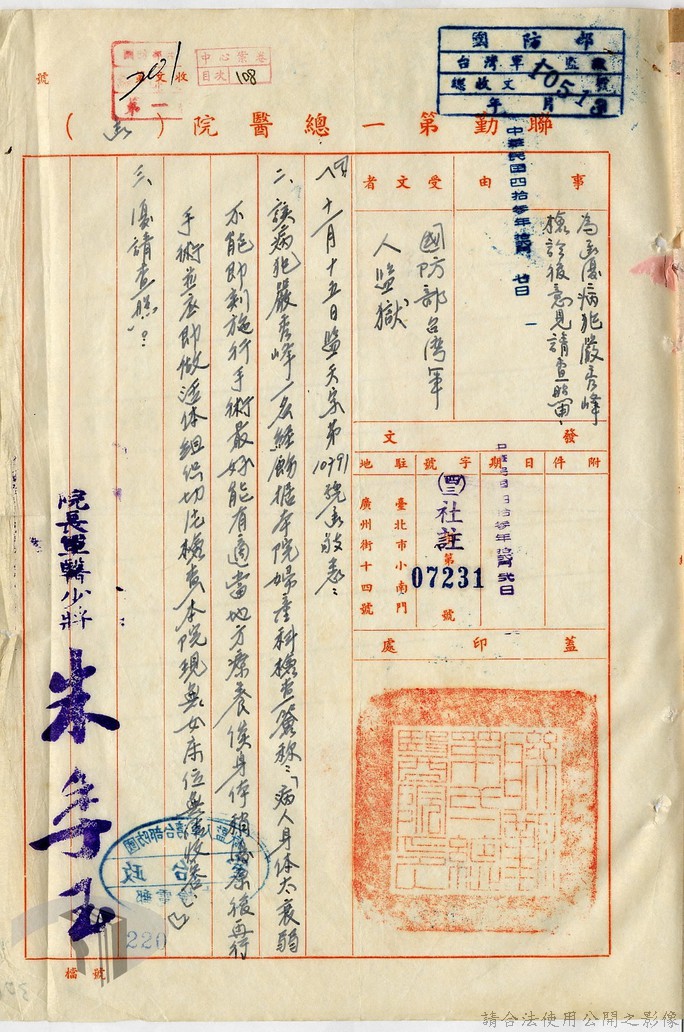 國防部
台灣軍 監獄
總收文 10513 號
年 月
收文
第一
201
中心案卷
目次 108
號
聯勤第一總醫院(函)
事由
為函復病犯嚴秀峰
檢診後意見請查照由
中華民國四拾參年 廿日
受文者
國防部台灣軍
人監獄
發文
附件
日期
中華民國四拾參年 貳日
字號
(四三)社註
第
07231
號
駐地
臺北市小南門
廣州街十四號
蓋印處
十一月十五日監天字第10791號函敬悉:
二、該病犯嚴秀峰一名經飭據本院婦產科檢查簽稱:「病人身体太衰弱
不能即刻施行手術最好能有適當地方療養俟身体稍為復原後再行
手術並底即做活体組织切片檢查本院現無女床位無法收容」
三、復請查照。
院長軍醫少將
朱季玉
國防部台灣軍人監獄
政台
220
檔號
請合法使用公開之影像